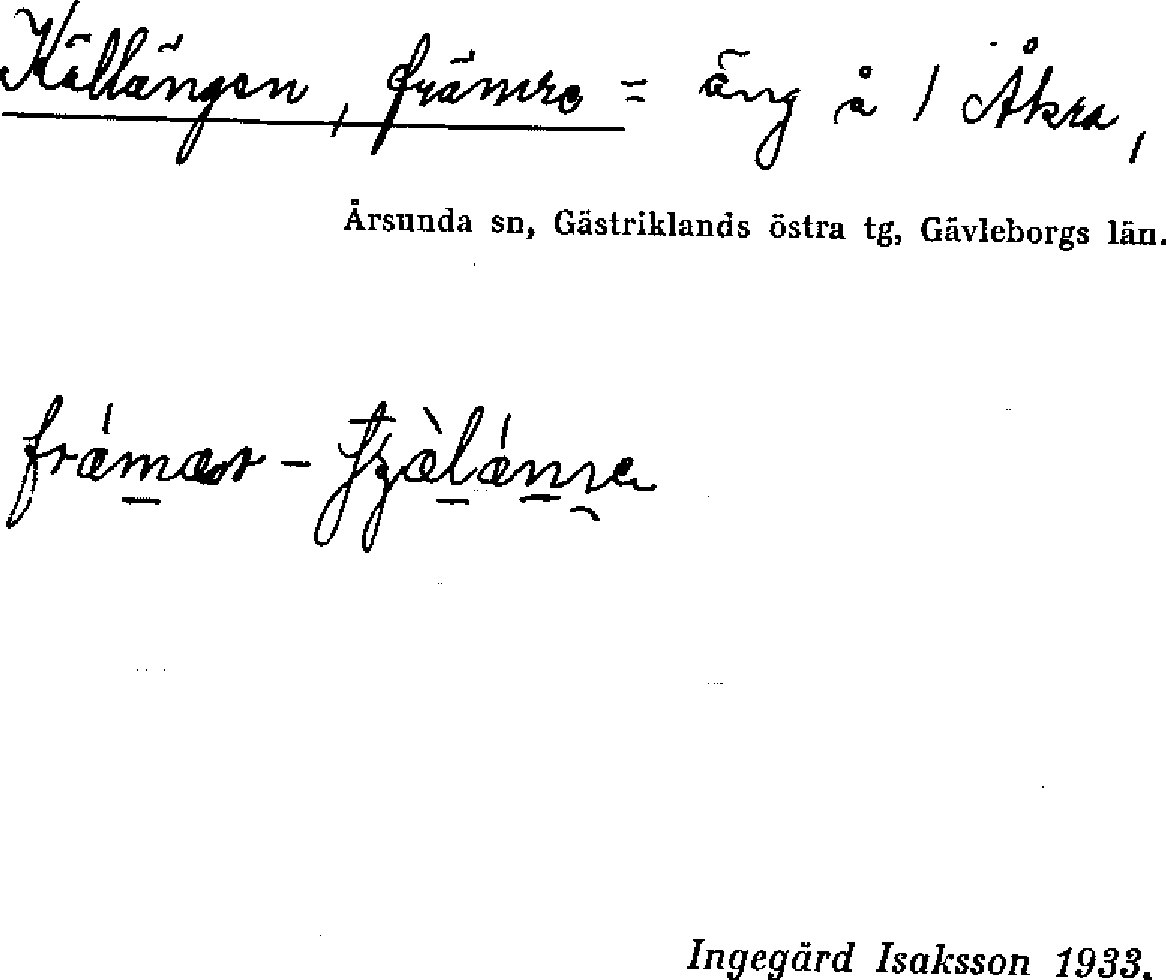 Källängen, främre = äng å 1 Åkra,
Årsunda sn, Gästriklands östra tg, Gävleborgs län.
Ingegärd Isaksson 1933.